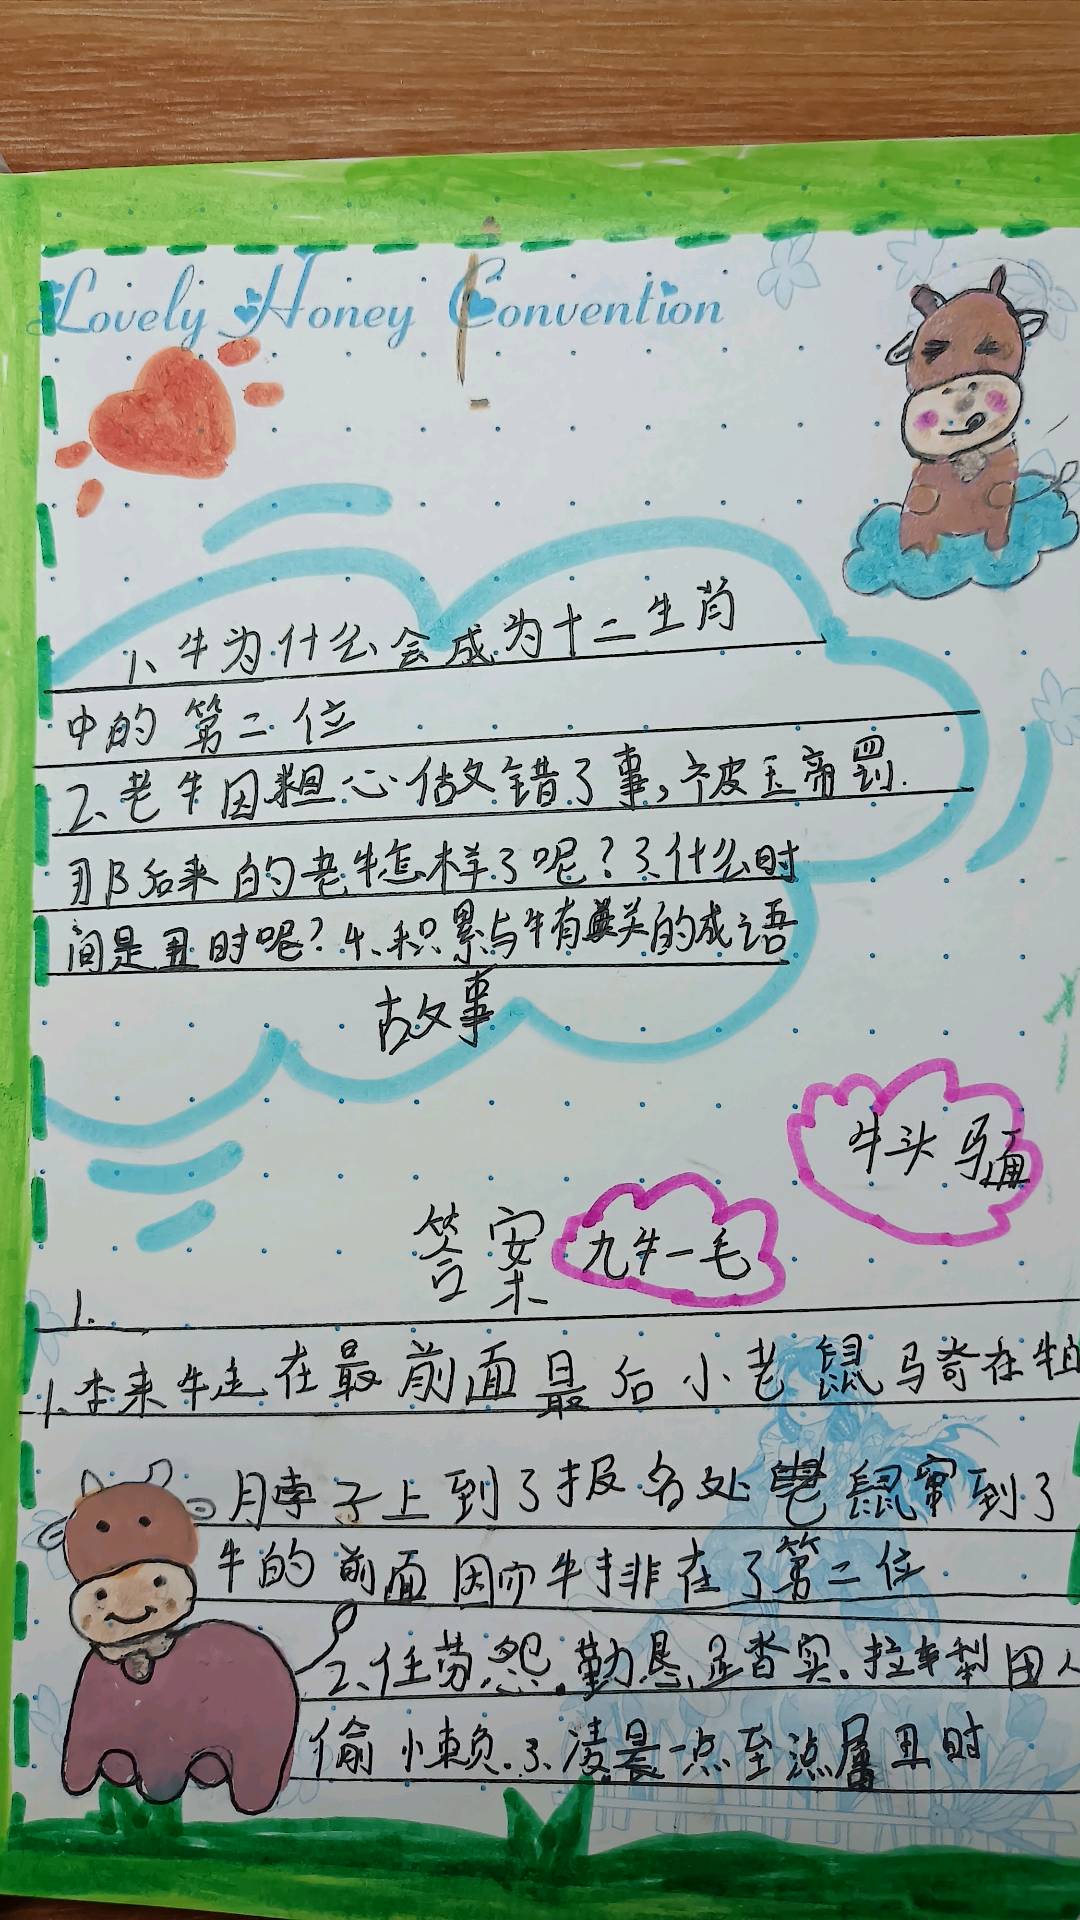 Lovely Honey Convention
1、牛为什么会成为十二生肖
中的第二位
2、老牛因粗心做错了事,被玉帝罚.
那后来的老牛怎样了呢?3、什么时
间是丑时呢?4、积累与牛有关的成语
故事
牛头马面
答案
九牛一毛
1.
1、本来牛走在最前面最后小老鼠马奇在牛
脖子上到了报名处老鼠窜到了
牛的前面因而牛排在了第二位
2、任劳怨.勤恳.足踏实.拉车犁田人
偷懒.3、凌晨一点至点属丑时